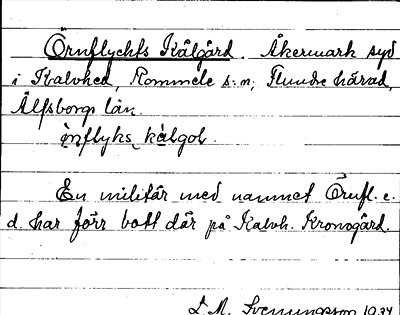 Örnflychts Kålgård. Åkermark syd
i Kalvhed, Rommele s:n; Flundre härad,
Älfsborgs län.
ö̀nflyks kàlgol.
En militär med namnet Örnfl. e.
d. har förr bott där på Kalvh. Kronogård.
L. M. Svenungsson 1934